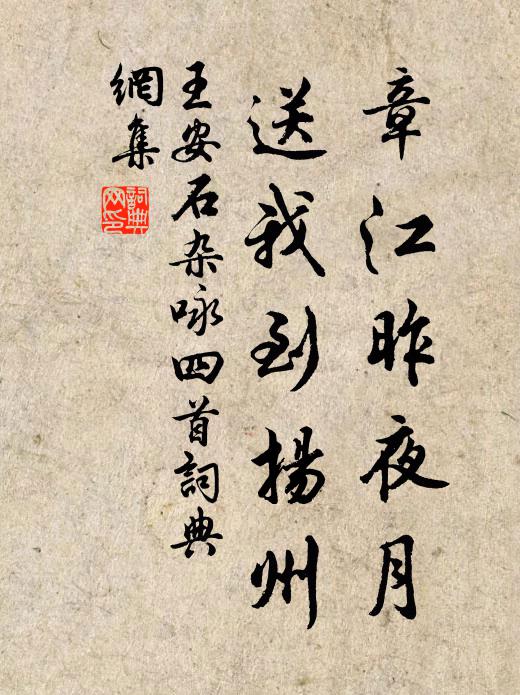 章江昨夜月
送我到揚州
王安石杂咏四首詞典
網集
詞典
网印